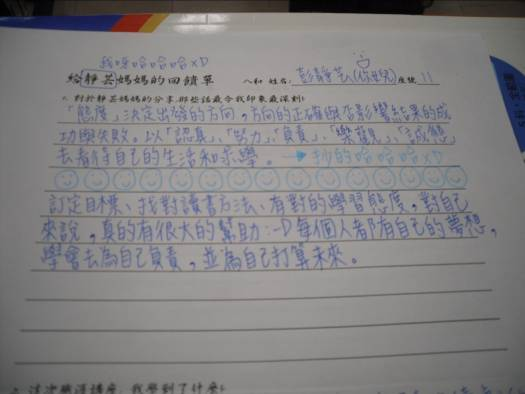 我呀哈哈哈哈xD
給靜芸媽媽的回饋單
八和 姓名: 彭靜芸(你女兒) 座號 11
1. 對於靜芸媽媽的分享,那些話最令我印象最深刻:
「態度」決定出發的方向,方向的正確與否影響結果的成
功與失敗。以「認真」、「努力」、「負責」、「樂觀」、「誠懇」
去看待自己的生活和求學。→抄的哈哈哈哈xD
訂定目標、找對讀書方法、有對的學習態度,對自己
來說,真的有很大的幫助:-D每個人都有自己的夢想,
學會去為自己負責,並為自己打算未來。
這次聽演講座,我學到了什麼: